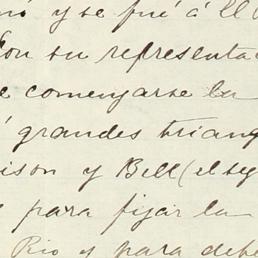 y se fué á El
con su representa
comenzarse la
grandes triang
ison y Bell (el seg
para fijar la
Rio y para dete